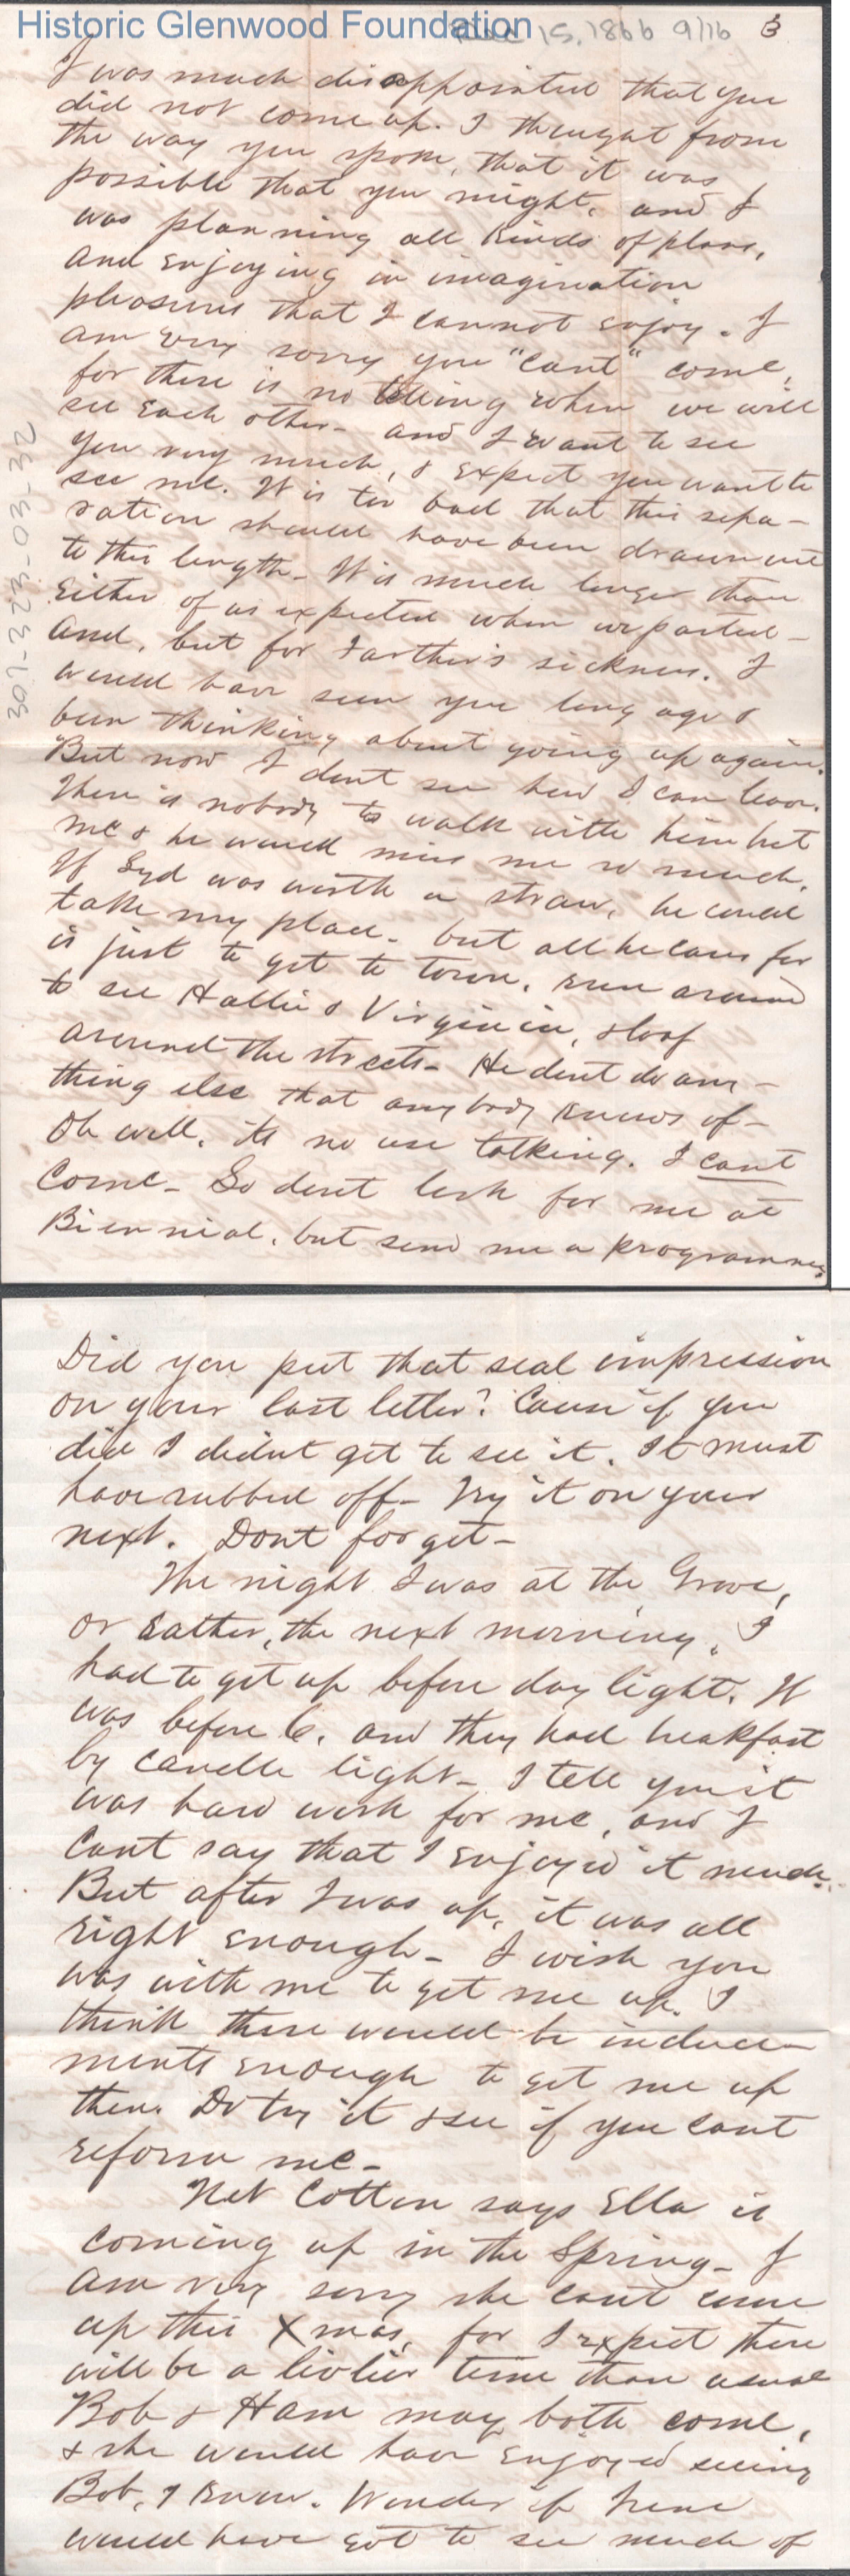 Historic Glenwood Foundation
Dec 15, 1866 9/16 3
I was much disappointed that you
did not come up. I thought from
the way you spoke, that it was
possible that you might, and I
was planning all kinds of plans,
and enjoying in imagination
pleasures that I cannot enjoy. I
am very sorry you "cant" come,
for there is no telling when we will
see each other - and I want to see
you very much, & expect you want to
see me. It is too bad that this sepa-
ration should have been drawn out
to this length - It is much longer than
either of us expected when we parted -
And, but for Farther's sickness. I
would have seen you long ago &
been thinking about going up again.
But now I dont see how I can leave.
There is nobody to walk with him but
me & he would miss me so much.
If Syd was worth a straw, he could
take my place - but all he cares for
is just to get to town, run around
to see Hallie & Virginia, & loaf
around the streets - He dont do any-
thing else that anybody knows of -
Oh well, its no use talking. I cant
come - So dont look for me at
Biennial, but send me a programme.
301-323-03-32
Did you put that seal impression
on your last letter? Cause if you
did I didnt get to see it. It must
have rubbed off - Try it on your
next. Dont forget -
The night I was at the Grove,
or rather, the next morning, I
had to get up before day light. It
was before 6, and they had breakfast
by candle light - I tell you it
was hard work for me, and I
cant say that I enjoyed it much.
But after I was up, it was all
right enough - I wish you
was with me to get me up. I
think there would be induce-
ments enough to get me up
then. Do try it & see if you cant
reform me -
Net Cotten says Ella is
coming up in the Spring - I
am very sorry she cant come
up this Xmas, for I expect there
will be a livlier time than usual
Bob & Ham may both come,
& she would have enjoyed seeing
Bob, I know. Wonder if Irene
would have got to see much of